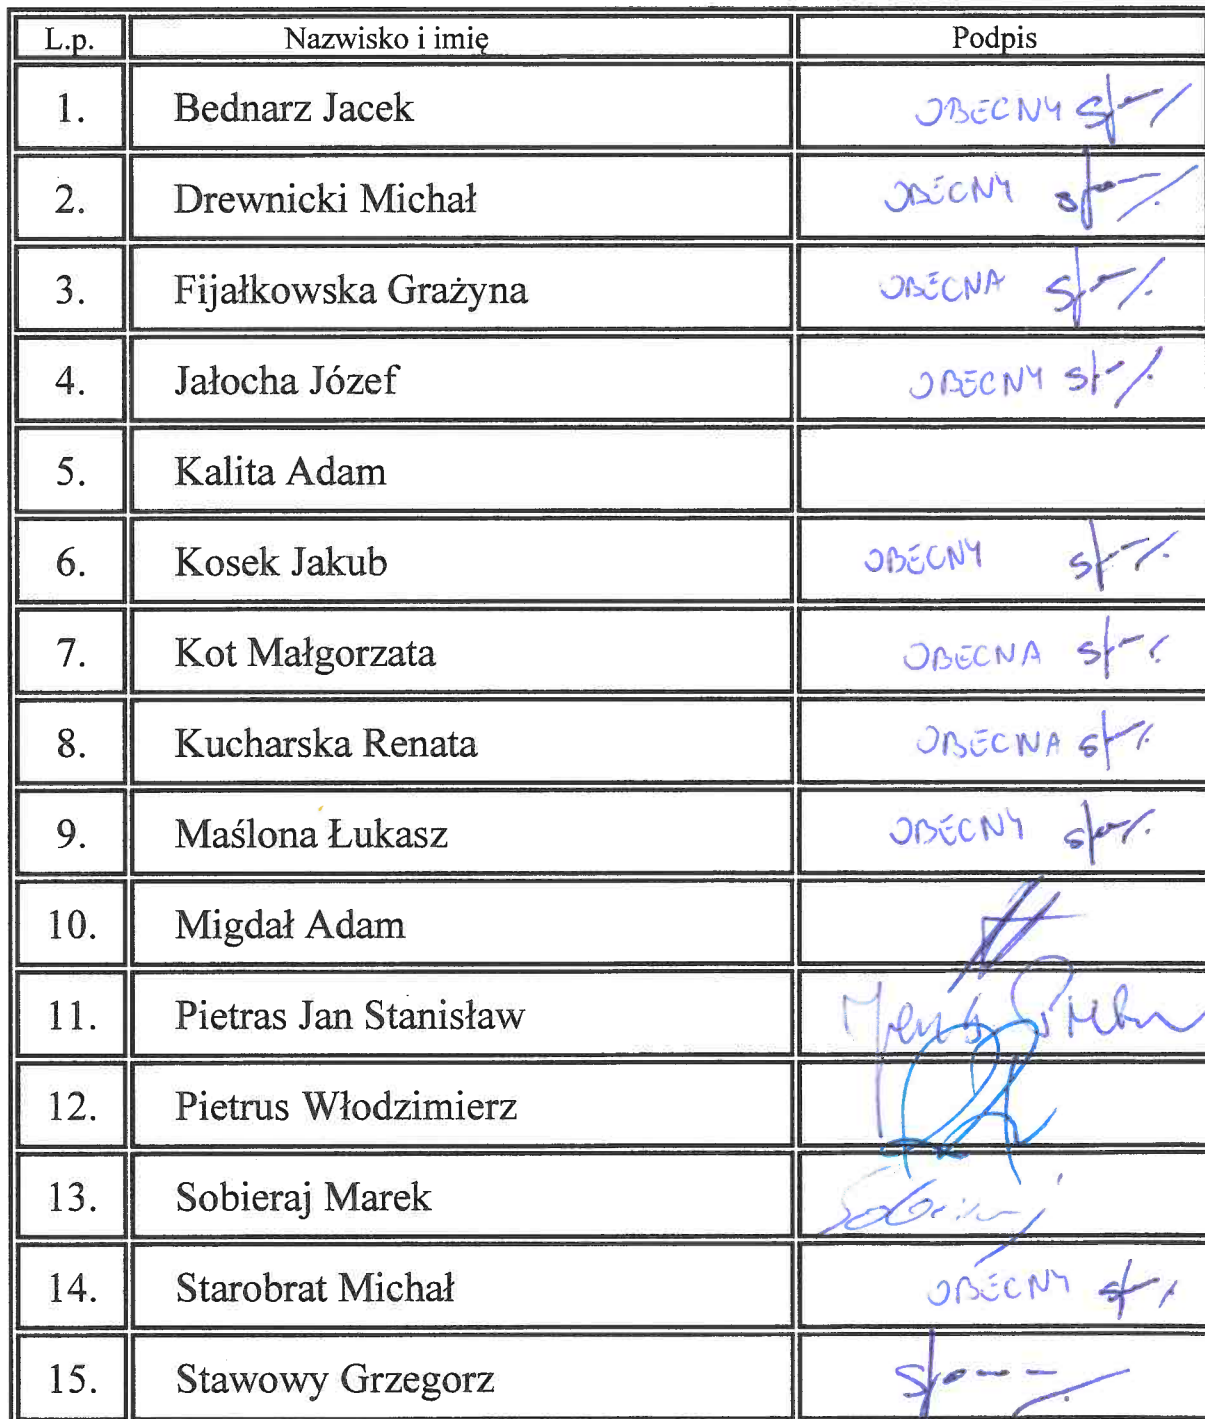 L.p. Nazwisko i imię Podpis
1. Bednarz Jacek OBECNY
2. Drewnicki Michał OBECNY
3. Fijałkowska Grażyna OBECNA
4. Jałocha Józef OBECNY
5. Kalita Adam
6. Kosek Jakub OBECNY
7. Kot Małgorzata OBECNA
8. Kucharska Renata OBECNA
9. Maślona Łukasz OBECNY
10. Migdał Adam
11. Pietras Jan Stanisław
12. Pietrus Włodzimierz
13. Sobieraj Marek Sobieraj
14. Starobrat Michał OBECNY
15. Stawowy Grzegorz